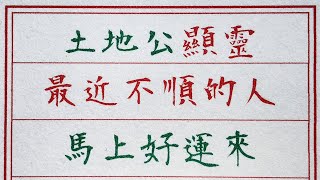 土地公顯靈
最近不順的人
馬上好運來